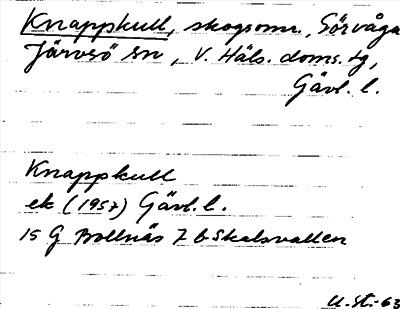 Knappkull, skogsomr., Sörvåga
Järvsö sn, V. Häls. doms. tg,
Gävl. l.
Knappkull
ek (1957) Gävl. l.
15 G Bollnäs 7 b Skalsvallen
U. St. -63